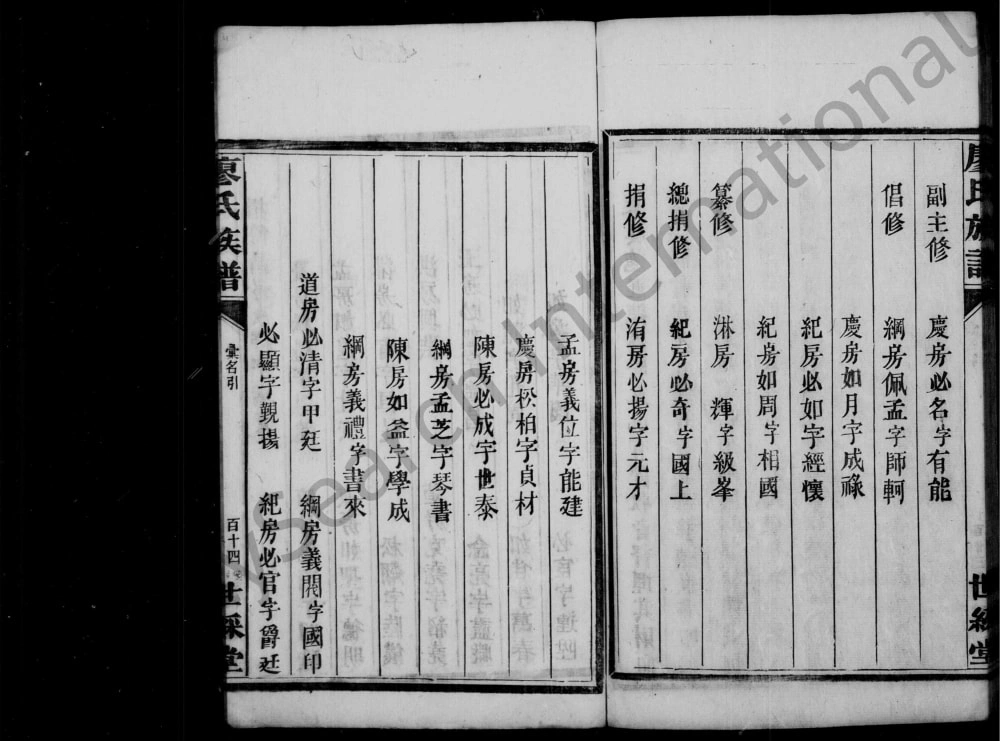 廖氏族譜
世綵堂
副主修 慶房必名字有能
倡修 綱房佩孟字師軻
慶房如月字成祿
紀房必如字經懷
紀房如周字相國
纂修 淋房 輝字級峯
總捐修 紀房必奇字國上
捐修 洧房必揚字元才
孟房義位字能建
慶房松柏字貞材
陳房必成字世泰
綱房孟芝字琴書
陳房如益字學成
綱房義禮字書來
道房必清字甲廷 綱房義閥字國印
必顯字觀揚 紀房必官字爵廷
廖氏族譜
彙名引
百十四
世綵堂
MSearch International